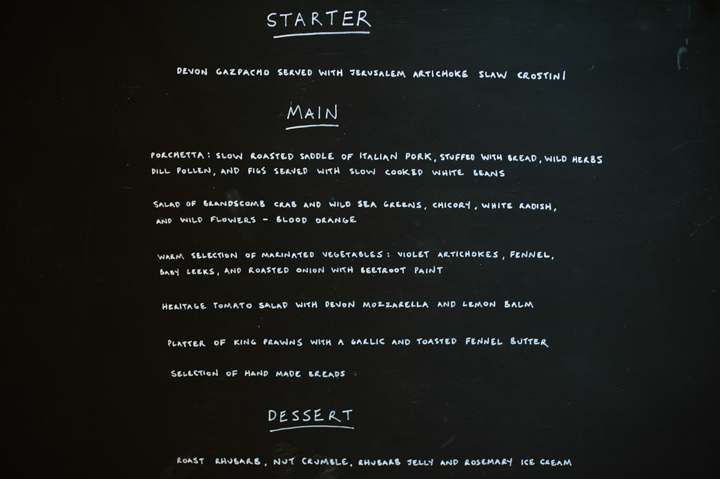 STARTER
DEVON GAZPACHO SERVED WITH JERUSALEM ARTICHOKE SLAW CROSTINI
MAIN
PORCHETTA: SLOW ROASTED SADDLE OF ITALIAN PORK, STUFFED WITH BREAD, WILD HERBS
DILL POLLEN, AND FIGS SERVED WITH SLOW COOKED WHITE BEANS
SALAD OF BRANDSCOMB CRAB AND WILD SEA GREENS, CHICORY, WHITE RADISH,
AND WILD FLOWERS - BLOOD ORANGE
WARM SELECTION OF MARINATED VEGETABLES: VIOLET ARTICHOKES, FENNEL,
BABY LEEKS, AND ROASTED ONION WITH BEETROOT PAINT
HERITAGE TOMATO SALAD WITH DEVON MOZZARELLA AND LEMON BALM
PLATTER OF KING PRAWNS WITH A GARLIC AND TOASTED FENNEL BUTTER
SELECTION OF HAND MADE BREADS
DESSERT
ROAST RHUBARB, NUT CRUMBLE, RHUBARB JELLY AND ROSEMARY ICE CREAM